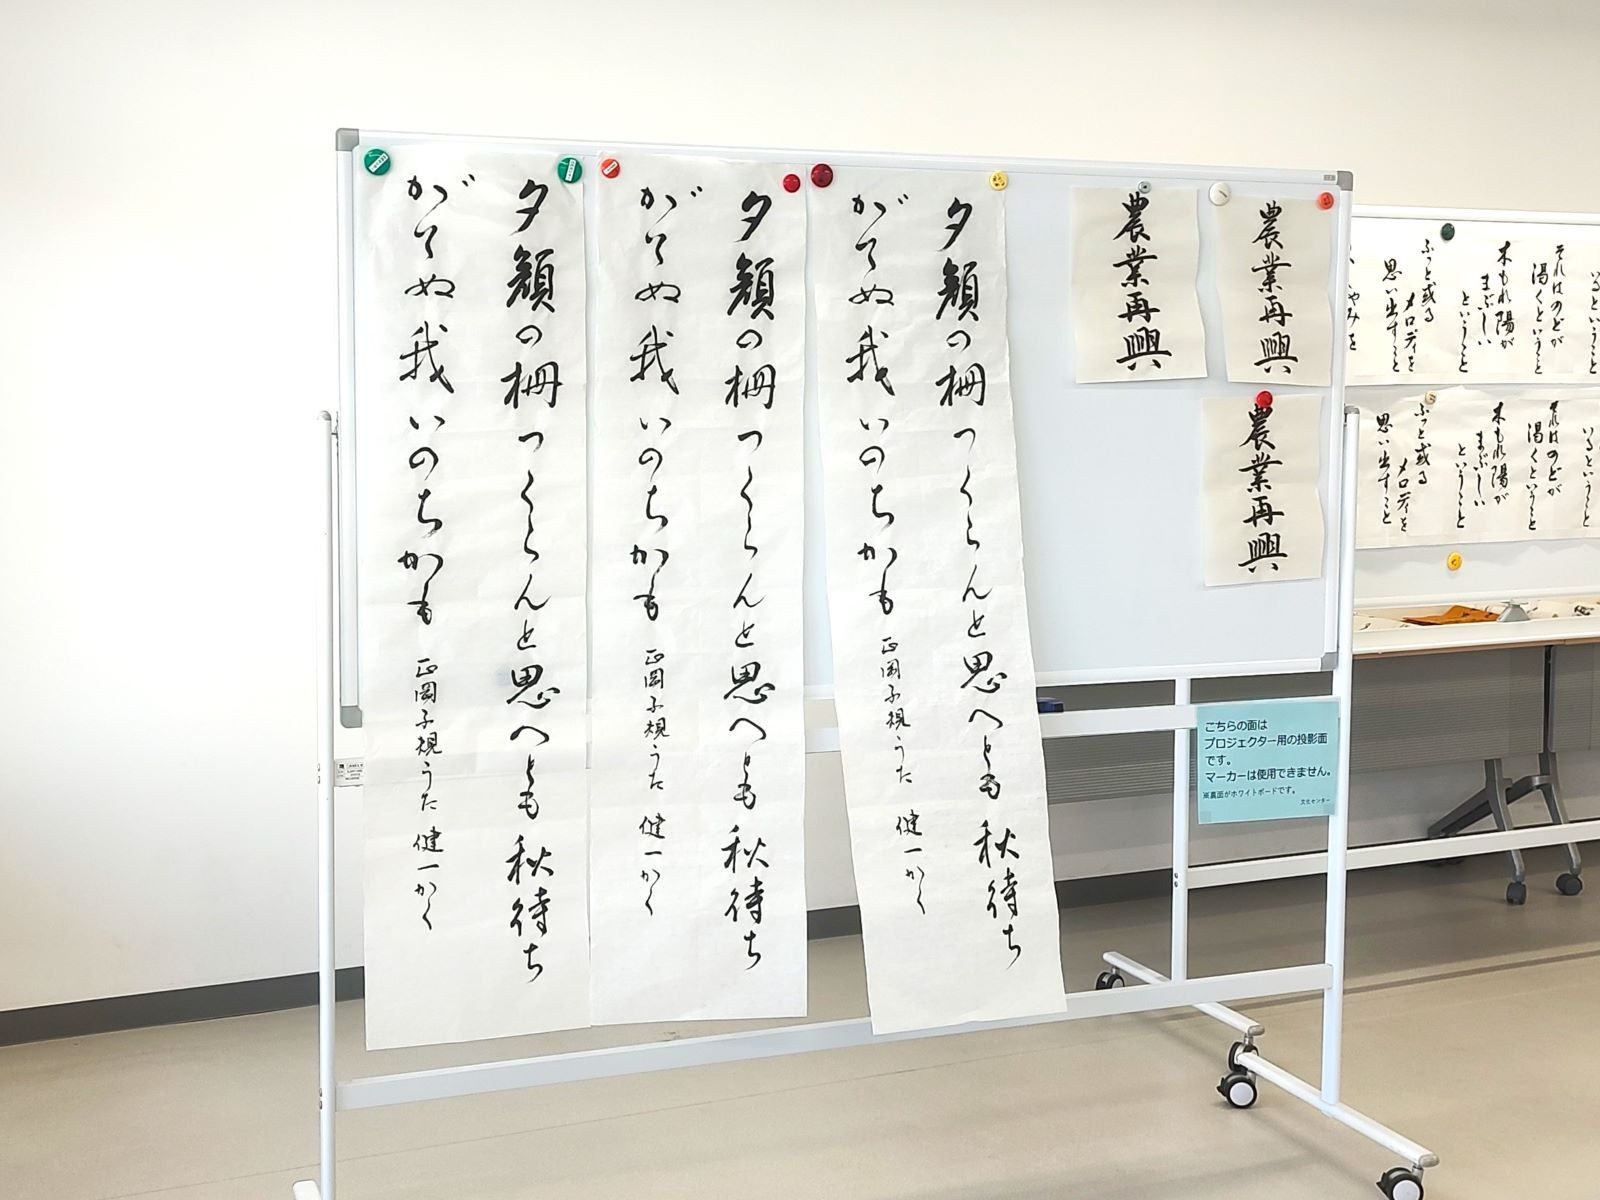 夕顔の柵つくらんと思へども秋待ち
がてぬ我いのちかも
正岡子規うた 健一かく
夕顔の柵つくらんと思へども秋待ち
がてぬ我いのちかも
正岡子規うた 健一かく
夕顔の柵つくらんと思へども秋待ち
がてぬ我いのちかも
正岡子規うた 健一かく
農業再興
農業再興
農業再興
こちらの面は
プロジェクター用の投影面
です。
マーカーは使用できません。
※裏面がホワイトボードです。
文化センター
いるということ
それはのどが
渇くということ
木もれ陽が
まぶしい
ということ
ふっと或る
メロディを
思い出すこと
いるということ
それはのどが
渇くということ
木もれ陽が
まぶしい
ということ
ふっと或る
メロディを
思い出すこと